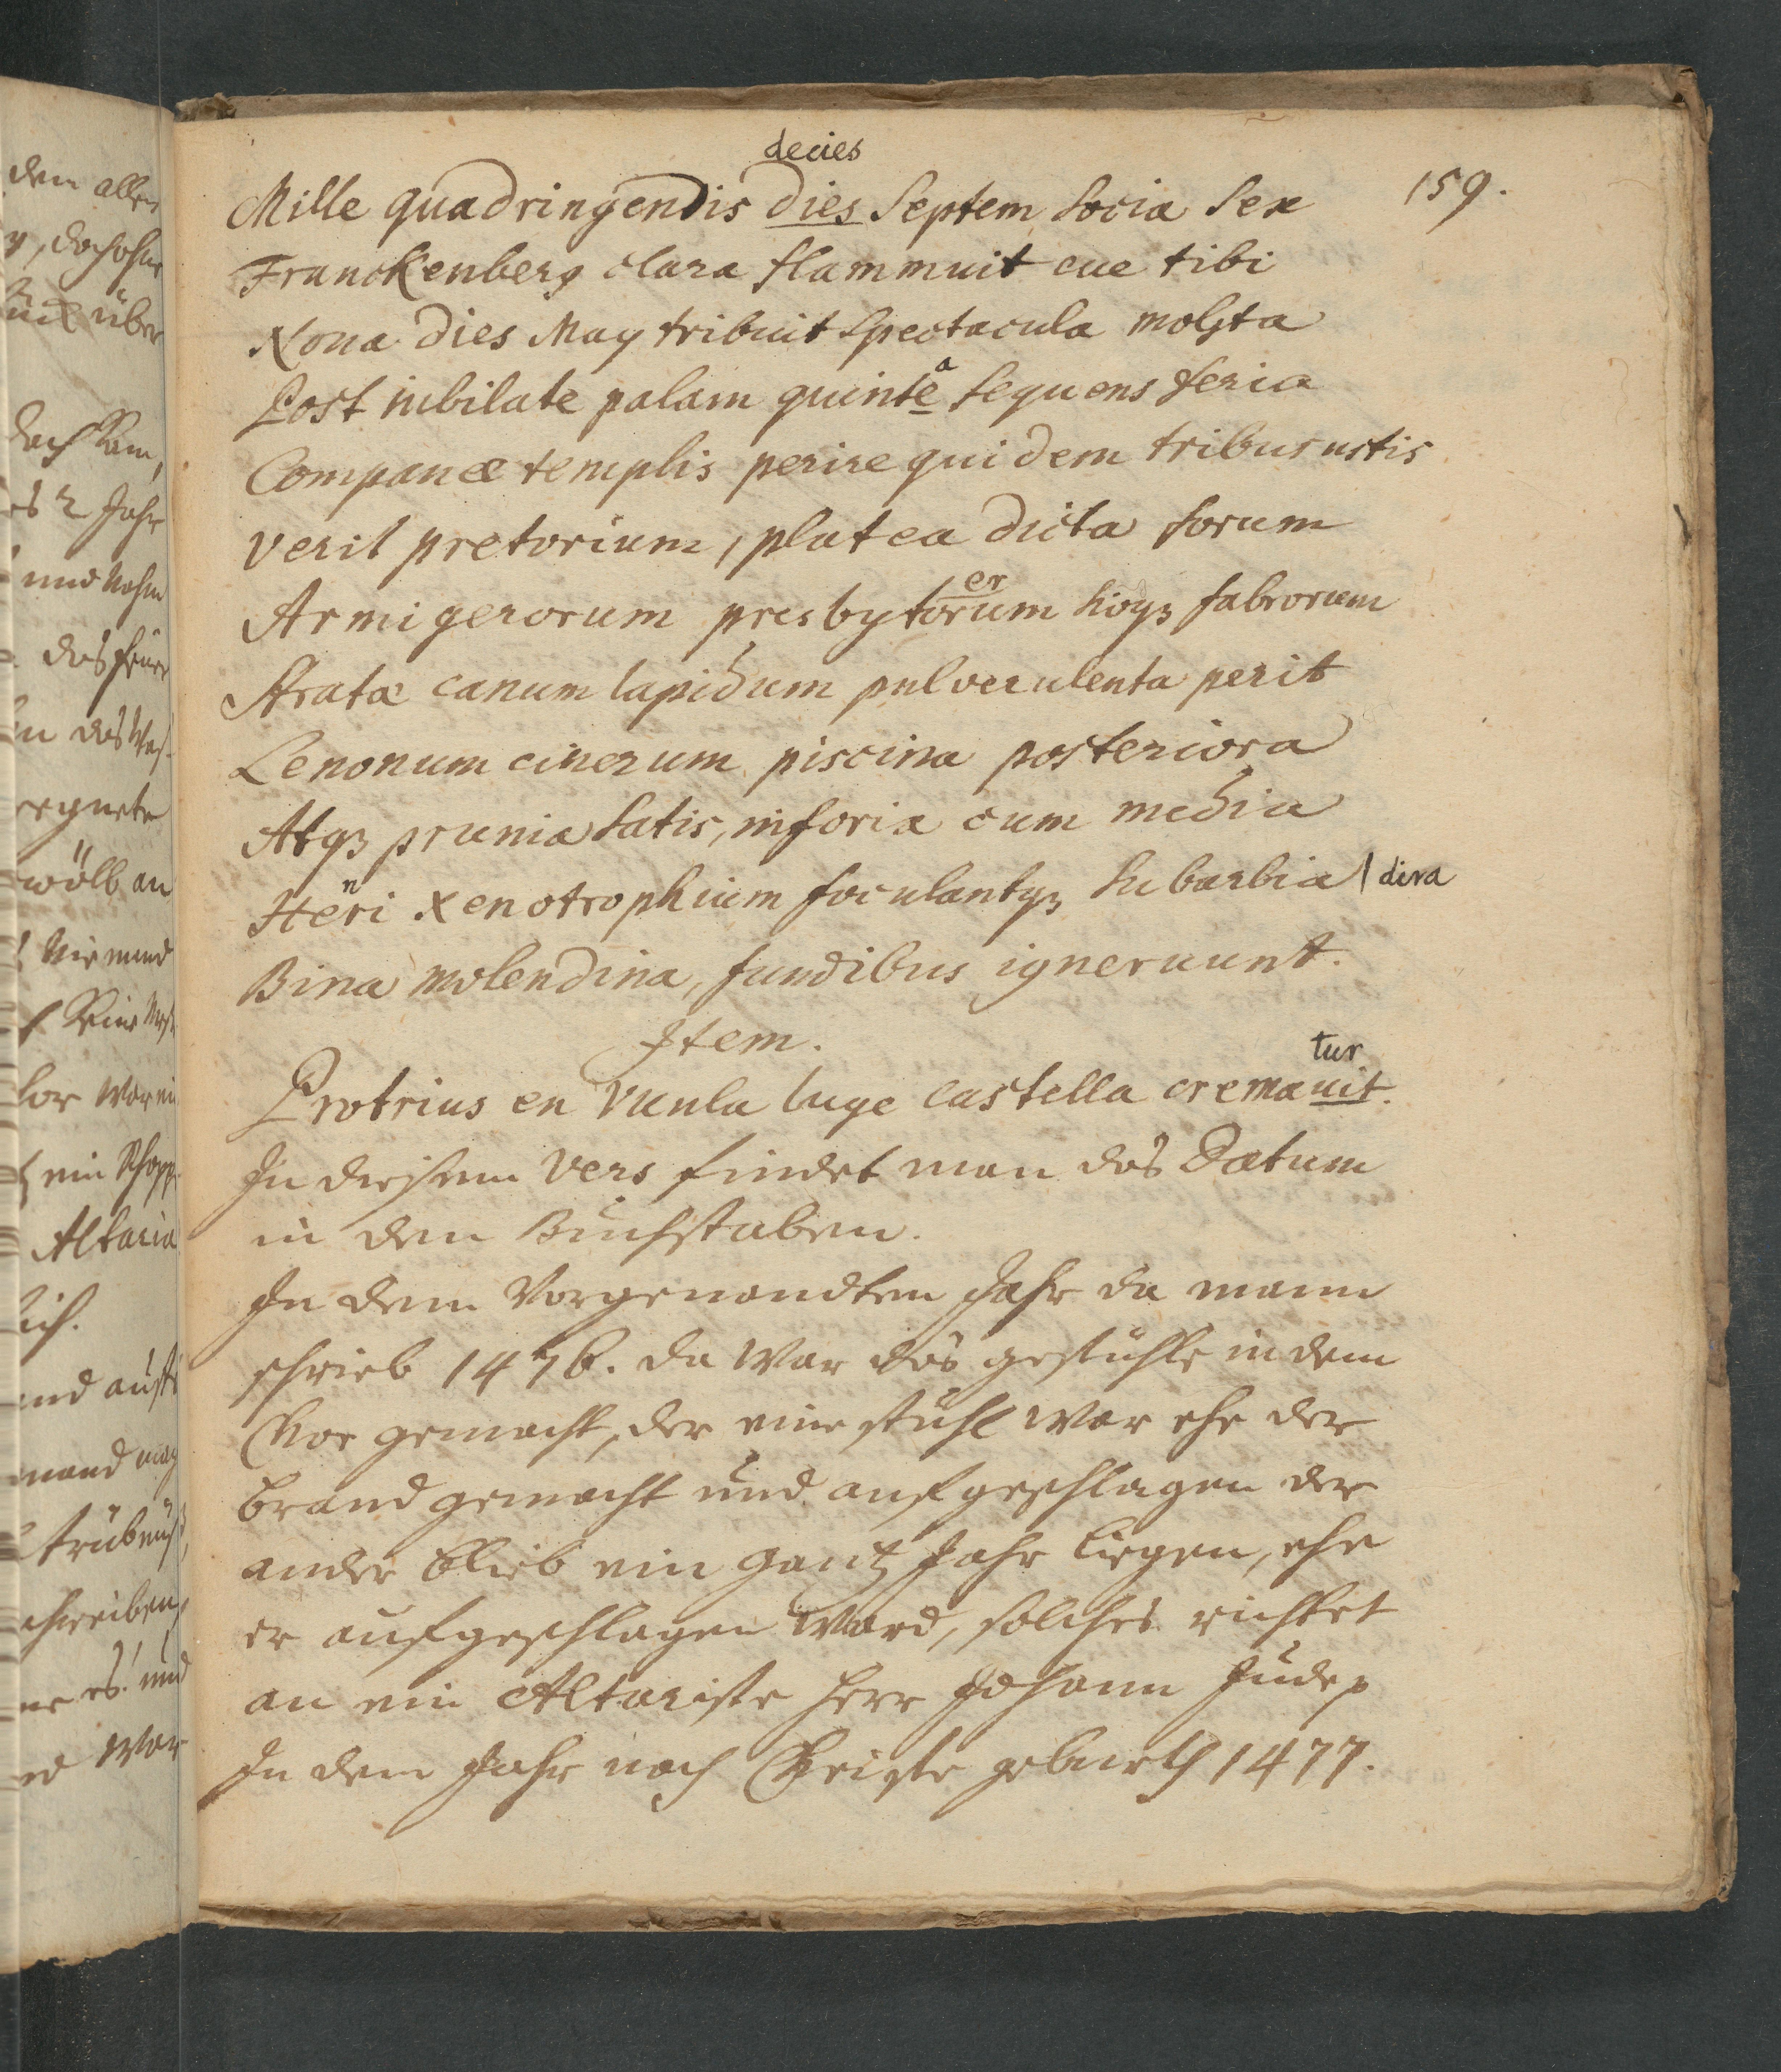 decies
Mille quadringendis dies Septem Socia Sex 159.
Franckenberg clara flammuit eue tibi
Nona dies May tribuit Spectacula mo&#x17F;ta
Post iubilate palam quinte a Sequens feria
Companæ templis perire quidem tribus ustis
Verit pretorium, platea dicta forum
er
Armigerorum presbytorum hioqз fabrorum
Strata canum lapidum pulverulenta perit
Lenonum cinerum piscina posteriora
Atqз prunia Satis, inforia cum media
Heri n xenotrophium foculantqз Subarbia | dira
Bina molendina, fundibus igneruunt.
Item.
tur
Protrius en Vunla luge castella cremauit.
In diesem Vers findet man das Datum
in den Buchstaben.
In dem Vorgenandten Jahr da mann
schrieb 1476. da war das gestühle in dem
Chor gemacht, der eine stuhl war ehe der
brand gemacht und aufgeschlagen der
ander blieb ein gantz Jahr liegen, ehe
er aufgeschlagen ward, solches richtet
an ein Altariste herr Johann Judex
In dem Jahr nach Christe geburth 1477.